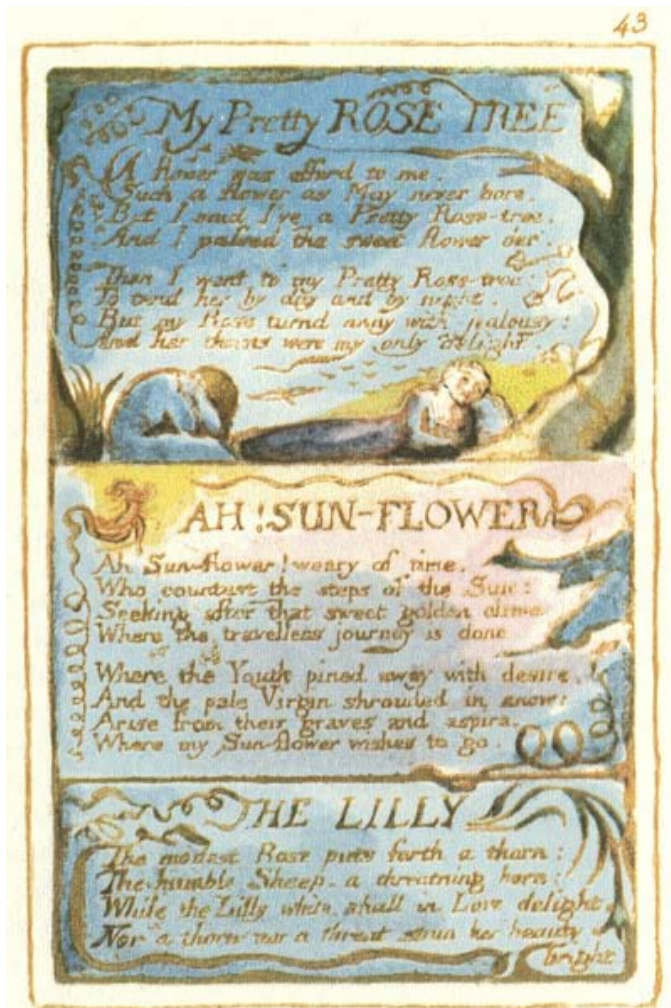 43
My Pretty ROSE TREE
A flower was offerd to me.
Such a flower as May never bore.
But I said I've a Pretty Rose-tree.
And I passed the sweet flower o'er.
Then I went to my Pretty Rose-tree:
To tend her by day and by night.
But my Rose turnd away with jealousy:
And her thorns were my only delight.
AH! SUN-FLOWER
Ah Sun-flower! weary of time.
Who countest the steps of the Sun:
Seeking after that sweet golden clime
Where the travellers journey is done
Where the Youth pined away with desire,
And the pale Virgin shrouded in snow:
Arise from their graves and aspire.
Where my Sun-flower wishes to go.
THE LILLY
The modest Rose puts forth a thorn:
The humble Sheep. a threatning horn:
While the Lilly white, shall in Love delight,
Nor a thorn nor a threat stain her beauty
bright